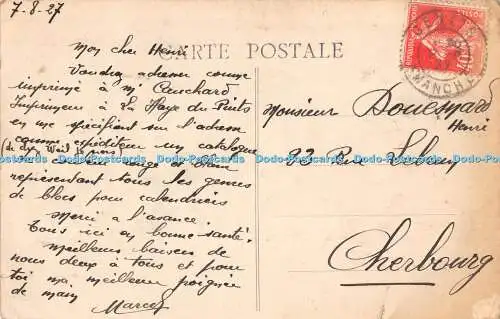 7-8-27
CARTE POSTALE
Mon cher Henri
Voudrais adresser comme
imprimé à Mr Pauchard
Imprimeur à La Haye du Puits
en me spécifiant sur l'adresse
comme expéditeur un catalogue
(de chez Weil
rouge et bleu
représentant tous les genres
de blocs pour calendriers
Merci à l'avance.
Tous ici en bonne santé.
Meilleurs baisers de
nous deux à tous et pour
toi ma meilleure poignée
de main
Marcel
Monsieur Douesnard
Henri
22 Rue
Cherbourg
MANCHE
Dodo-Postcards Dodo-Postcards Dodo-Postcards Dodo-Postcards